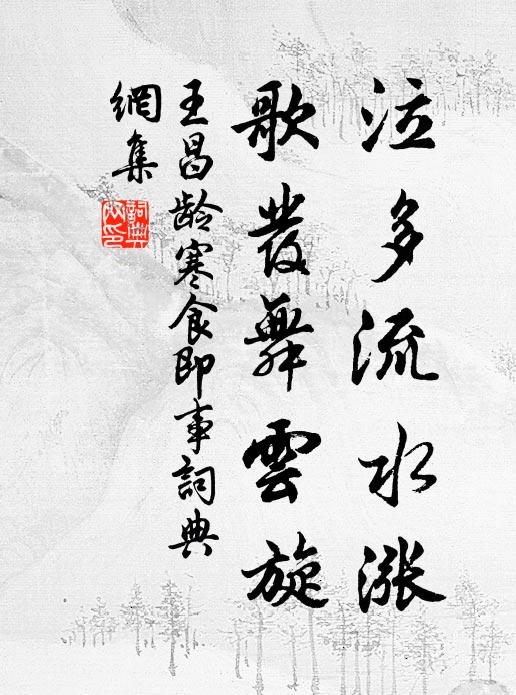 泣多流水漲
歌發舞雲旋
王昌龄寒食即事詞典
網集
詞典網印